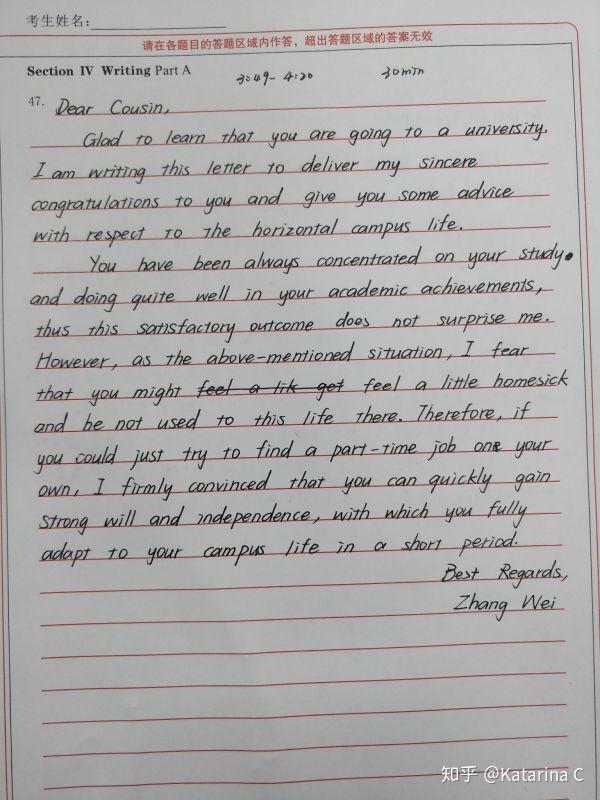 考生姓名:
请在各题目的答题区域内作答,超出答题区域的答案无效
Section IV Writing Part A
3:49-4:20 30min
47. Dear Cousin,
Glad to learn that you are going to a university.
I am writing this letter to deliver my sincere
congratulations to you and give you some advice
with respect to the horizontal campus life.
You have been always concentrated on your study.
and doing quite well in your academic achievements,
thus this satisfactory outcome does not surprise me.
However, as the above-mentioned situation, I fear
that you might feel a lik get feel a little homesick
and be not used to this life there. Therefore, if
you could just try to find a part-time job one your
own, I firmly convinced that you can quickly gain
strong will and independence, with which you fully
adapt to your campus life in a short period.
Best Regards,
Zhang Wei
知乎 @Katarina C